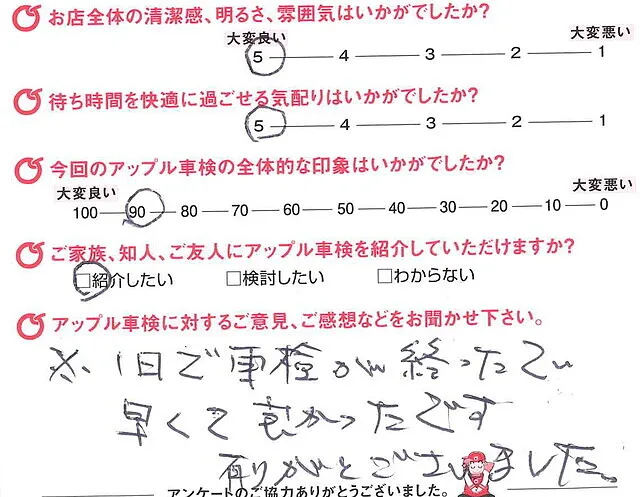 お店全体の清潔感、明るさ、雰囲気はいかがでしたか?
大変良い 大変悪い
5 4 3 2 1
待ち時間を快適に過ごせる気配りはいかがでしたか?
5 4 3 2 1
今回のアップル車検の全体的な印象はいかがでしたか?
大変良い 大変悪い
100 90 80 70 60 50 40 30 20 10 0
ご家族、知人、ご友人にアップル車検を紹介していただけますか?
□紹介したい □検討したい □わからない
アップル車検に対するご意見、ご感想などをお聞かせ下さい。
※1日で車検が終ったので
早くて良かったです
有りがとございました。
アンケートのご協力ありがとうございました。